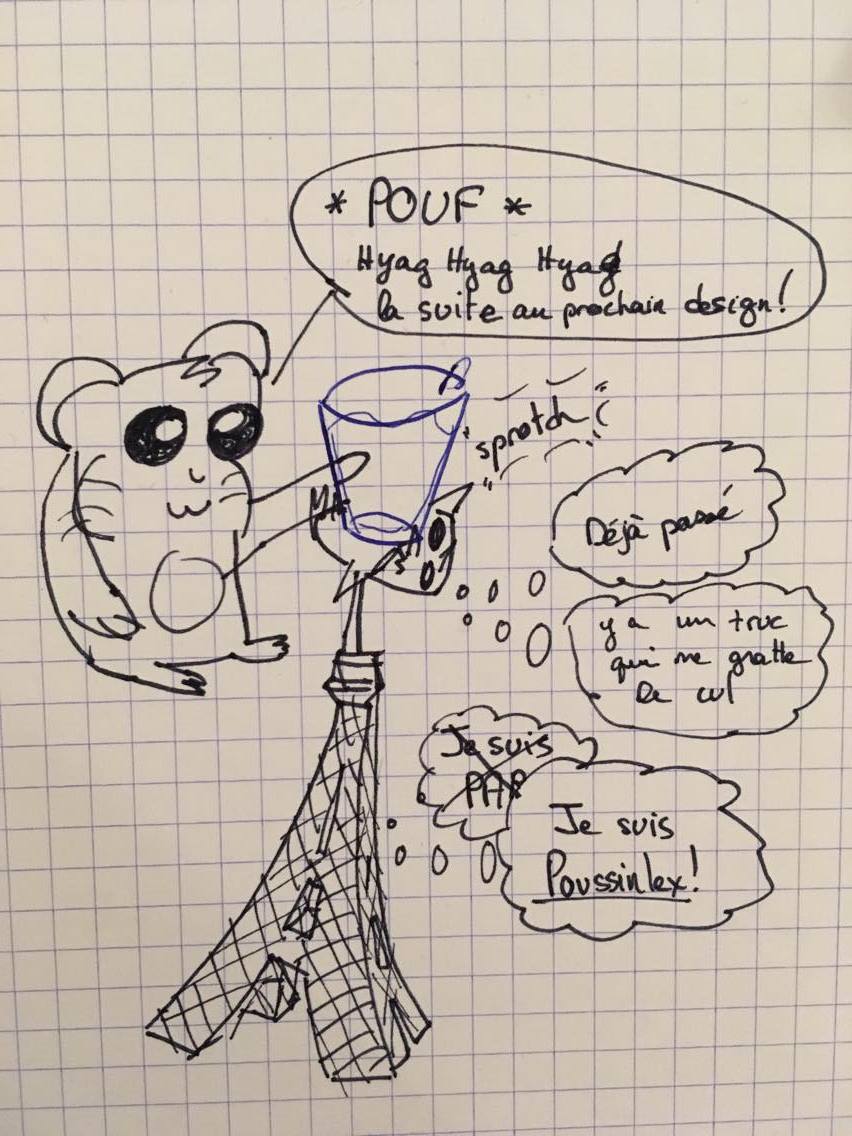 * POUF *
Hyag Hyag Hyag
la suite au prochain design !
"sprotch"
Déjà passé
y a un truc
qui me gratte
le cul
Je suis
PAR
Je suis
Poussinlex !